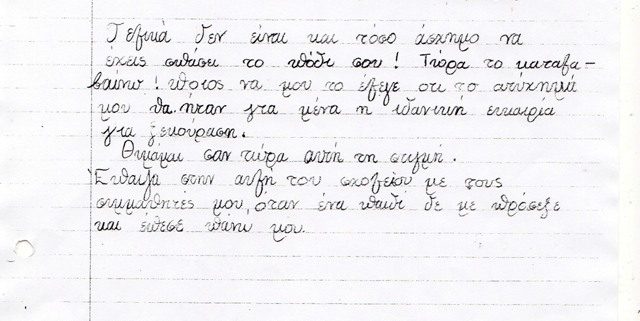 Τελικά δεν είναι και τόσο άσχημο να
έχεις σπάσει το πόδι σου! Τώρα το καταλα-
βαίνω! ποιος να μου το έλεγε οτι το ατύχημά
μου θα ήταν για μένα η ιδανική ευκαιρία
για ξεκούραση.
Θυμάμαι σαν τώρα αυτή τη στιγμή.
Έπαιζα στην αυλή του σχολείου με τους
συμμαθητές μου, όταν ένα παιδί δε με πρόσεξε
και έπεσε πάνω μου.